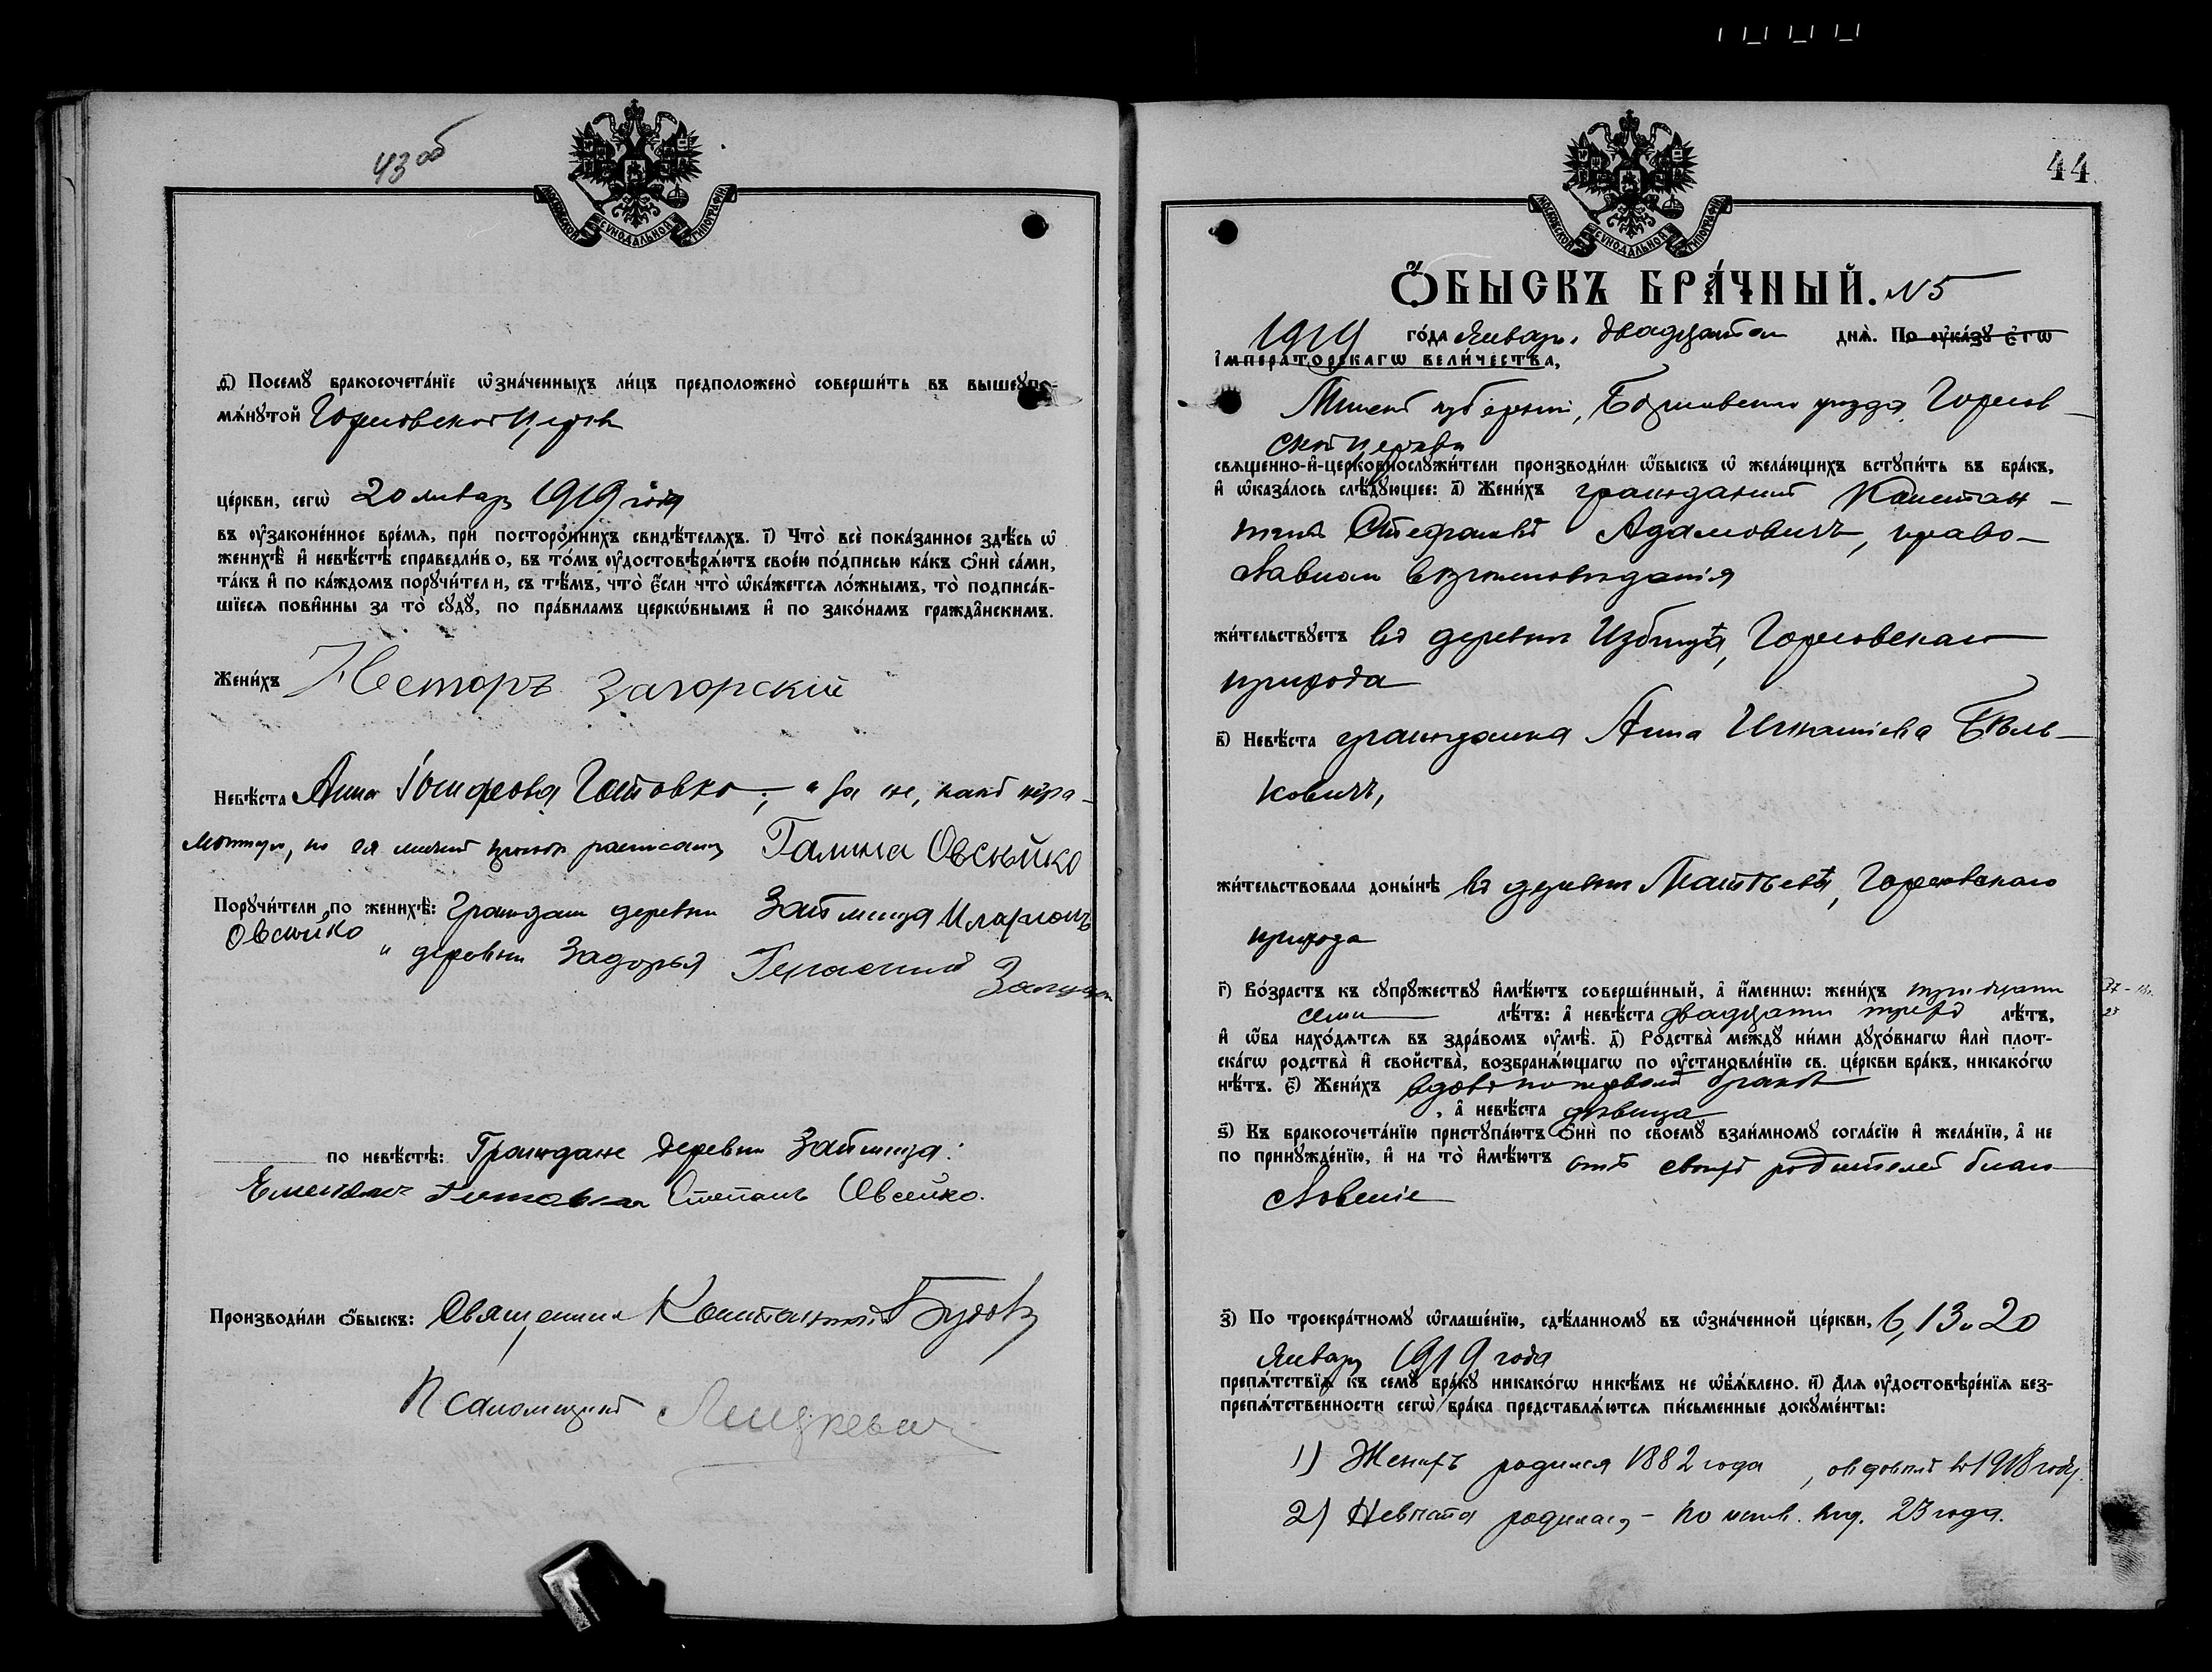 43 об
МОСКОВСКОЙ СѴНОДАЛЬНОЙ ТИПОГРАФІИ
ѳ҃) Посемꙋ бракосочета́нїе ѡ҆зна́ченныхъ ли́цъ предположено̀ соверши́ть въ вышеꙋпо-
мѧ́нꙋтой Горковской церкви
це́ркви, сегѡ̀ 20 января 1919 года
въ ᲂу҆зако́ненное вре́мѧ, при посторо́ннихъ свидѣ́телѧхъ. і҃) Что̀ всѐ пока́занное здѣ́сь ѡ҆
женихѣ̀ и҆ невѣ́стѣ справедли́во, въ то́мъ ᲂу҆достовѣрѧ́ютъ свое́ю по́дписью ка́къ ѻ҆нѝ са́ми,
та́къ и҆ по ка́ждомъ порꙋчи́тели, съ тѣ́мъ, что̀ є҆́сли что̀ ѡ҆ка́жетсѧ ло́жнымъ, то̀ подписа́в-
шїесѧ пови́нны за то̀ сꙋдꙋ̀, по пра́виламъ церкѡ́внымъ и҆ по зако́намъ гражда́нскимъ.
Жени́хъ Несторъ Загорскій
Невѣ́ста Анна Іосифова Гатовко, а за не, какъ негра-
мотную, по ея личной просьбѣ расписался Галина Овсейко
Порꙋчи́тели по женихѣ̀: Граждане деревни Заболица Иларіонъ
Овсейко и деревни Задорья Герасимъ
по невѣ́стѣ: Граждане деревни Заболица:
Степанъ Овсейко.
Производи́ли ѻ҆́быскъ: Священникъ Константинъ
Псаломщикъ Лицкевич
44
МОСКОВСКОЙ СѴНОДАЛЬНОЙ ТИПОГРАФІИ
Ѻ҆́БЫСКЪ БРА́ЧНЫЙ. N 5
1919 го́да Январь, двадцатаго днѧ̀. По ᲂу҆ка́зꙋ є҆гѡ̀
и҆мпера́торскагѡ вели́чества,
Минской губерніи, Борисовскаго уѣзда, Горков-
ской церкви
свѧще́нно-и҆-церковнослꙋжи́тели производи́ли ѡ҆́быскъ ѡ҆ жела́ющихъ встꙋпи́ть въ бра́къ,
и҆ ѡ҆каза́лось слѣ́дꙋющее: а҃) Жени́хъ гражданинъ Констан-
тинъ Стефановъ Адамовичъ, право-
славнаго вѣроисповѣданія
жи́тельствꙋетъ въ деревнѣ Избища, Горковскаго
прихода
в҃) Невѣ́ста гражданка Анна Игнатіева Бель-
ковичъ,
жи́тельствовала доны́нѣ въ деревнѣ Матвѣевѣ, Горковскаго
прихода
г҃) Во́зрастъ къ сꙋпрꙋ́жествꙋ и҆мѣ́ютъ соверше́нный, а҆ и҆́меннѡ: жени́хъ тридцати
семи лѣ́тъ: а҆ невѣ́ста двадцати трехъ лѣ́тъ,
и҆ ѡ҆́ба нахо́дѧтсѧ въ здра́вомъ ᲂу҆мѣ̀. д҃) Родства̀ междꙋ̀ ни́ми дꙋхо́внагѡ и҆лѝ плот-
ска́гѡ родства̀ и҆ сво́йства̀, возбранѧ́ющагѡ по ᲂу҆становле́нїю св. це́ркви бра́къ, никако́гѡ
нѣ́тъ. є҃) Жени́хъ вдовъ по первомъ бракѣ
, а҆ невѣ́ста дѣвица
ѕ҃) Къ бракосочета́нїю пристꙋпа́ютъ ѻ҆нѝ по своемꙋ̀ взаи́мномꙋ согла́сїю и҆ жела́нїю, а҆ не
по принꙋжде́нїю, и҆ на то̀ и҆мѣ́ютъ отъ своихъ родителей благо-
словеніе
з҃) По троекра́тномꙋ ѡ҆глаше́нїю, сдѣ́ланномꙋ въ ѡ҆зна́ченной це́ркви, 6, 13 и 20
Января 1919 года
препѧ́тствїѧ къ семꙋ̀ бра́кꙋ никако́гѡ никѣ́мъ не ѡ҆б̾ѧ́влено. и҃) Длѧ ᲂу҆достовѣре́нїѧ без-
препѧ́тственности сегѡ̀ бра́ка представлѧ́ютсѧ пи́сьменные докꙋме́нты:
1) Женихъ родился 1882 года, овдовѣлъ въ 1918 году.
2) Невѣста родилась - по исп. вѣд. 23 года.